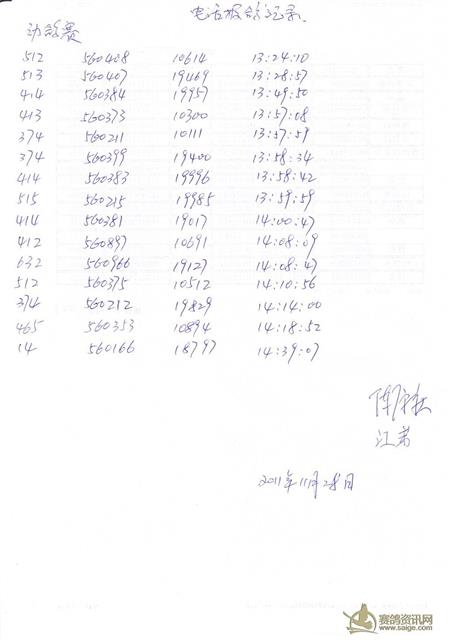 电话报鸽记录
动鸽赛
512 560408 10614 13:24:10
513 560407 19469 13:28:57
414 560384 19957 13:49:50
413 560373 10300 13:57:08
374 560211 10111 13:57:59
374 560399 19400 13:58:34
414 560383 19996 13:58:42
515 560215 19985 13:59:59
414 560381 19017 14:00:47
412 560897 10691 14:08:09
632 560966 19127 14:08:47
512 560375 10512 14:10:56
374 560212 19829 14:14:00
465 560353 10894 14:18:52
14 560166 18797 14:39:07
江苏
2011年11月28日
赛鸽资讯网
www.saige.com